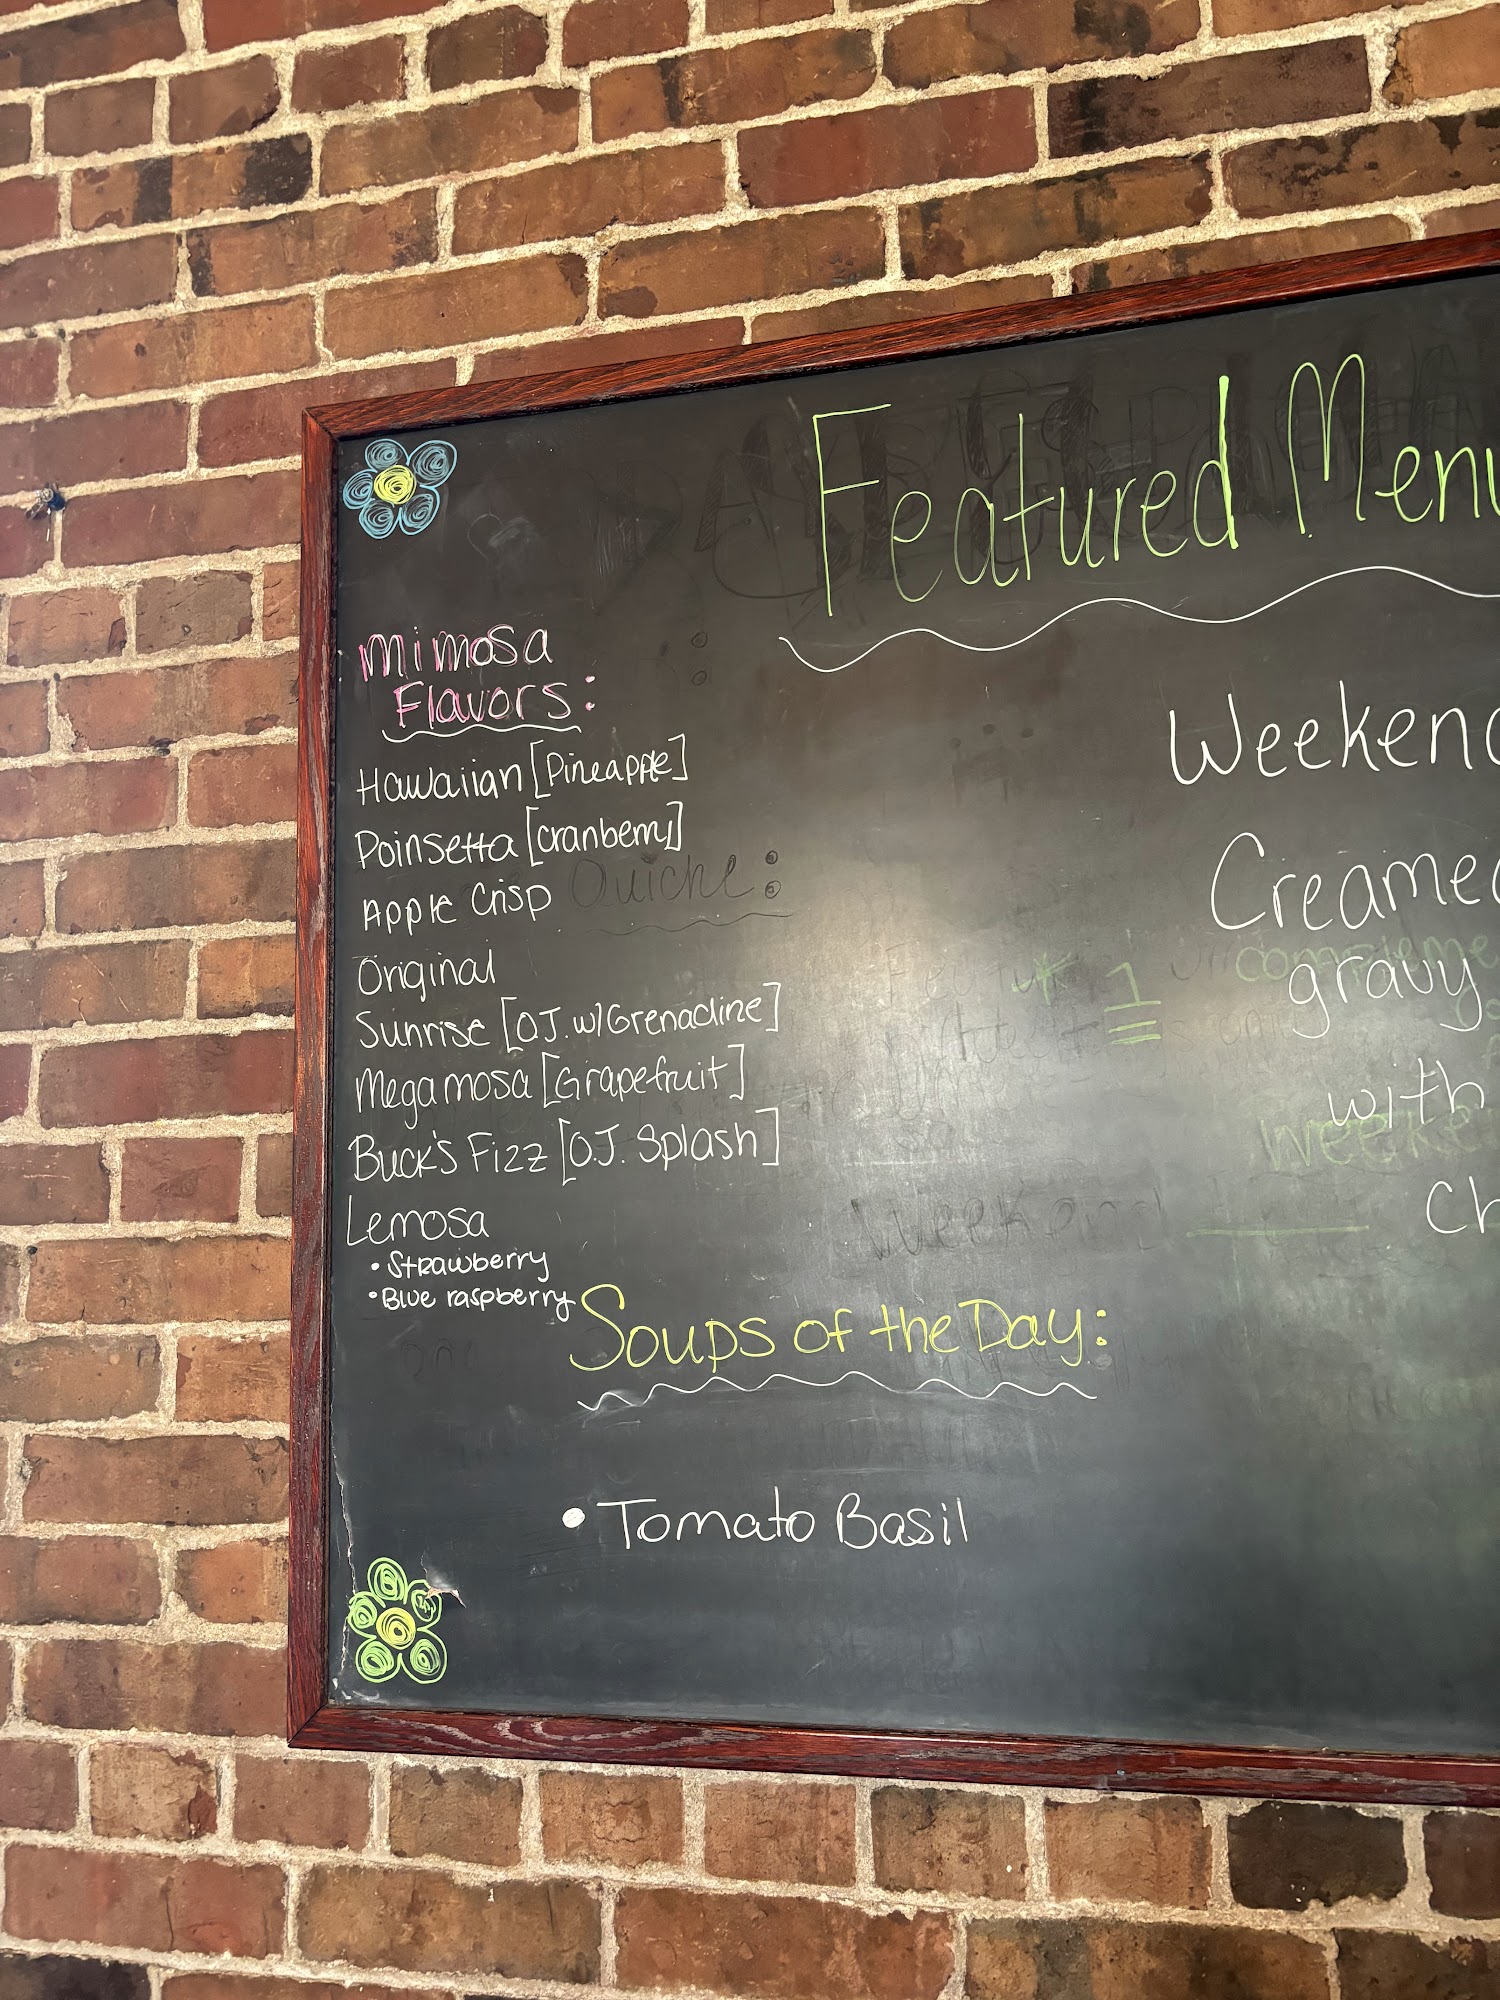 Featured Menu
Mimosa
Flavors:
Hawaiian [Pineapple]
Poinsetta [Cranberry]
Apple Crisp
Original
Sunrise [OJ. w/Grenadine]
Megamosa [Grapefruit]
Buck's Fizz [O.J. Splash]
Lemosa
• Strawberry
• Blue raspberry
Quiche:
Weekend
Creamed
gravy
with
Soups of the Day:
• Tomato Basil